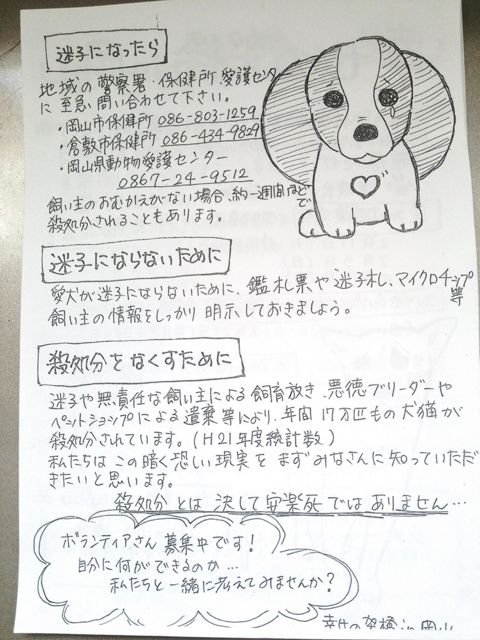 迷子になったら
地域の警察署・保健所、愛護センター
に至急問い合わせて下さい。
・岡山市保健所 086-803-1259
・倉敷市保健所 086-434-9829
・岡山県動物愛護センター
0867-24-9512
飼い主のおむかえがない場合、約一週間ほどで
殺処分されることもあります。
迷子にならないために
愛犬が迷子にならないために、鑑札票や迷子札、マイクロチップ等
飼い主の情報をしっかり明示しておきましょう。
殺処分をなくすために
迷子や無責任な飼い主による飼育放き、悪徳ブリーダーや
ペットショップによる遺棄等により、年間17万匹もの犬猫が
殺処分されています。(H21年度統計数)
私たちはこの暗く恐しい現実をまずみなさんに知っていただ
きたいと思います。
殺処分とは決して安楽死ではありません…
ボランティアさん募集中です!
自分に何ができるのか…
私たちと一緒に考えてみませんか?
幸せの架橋 in 岡山